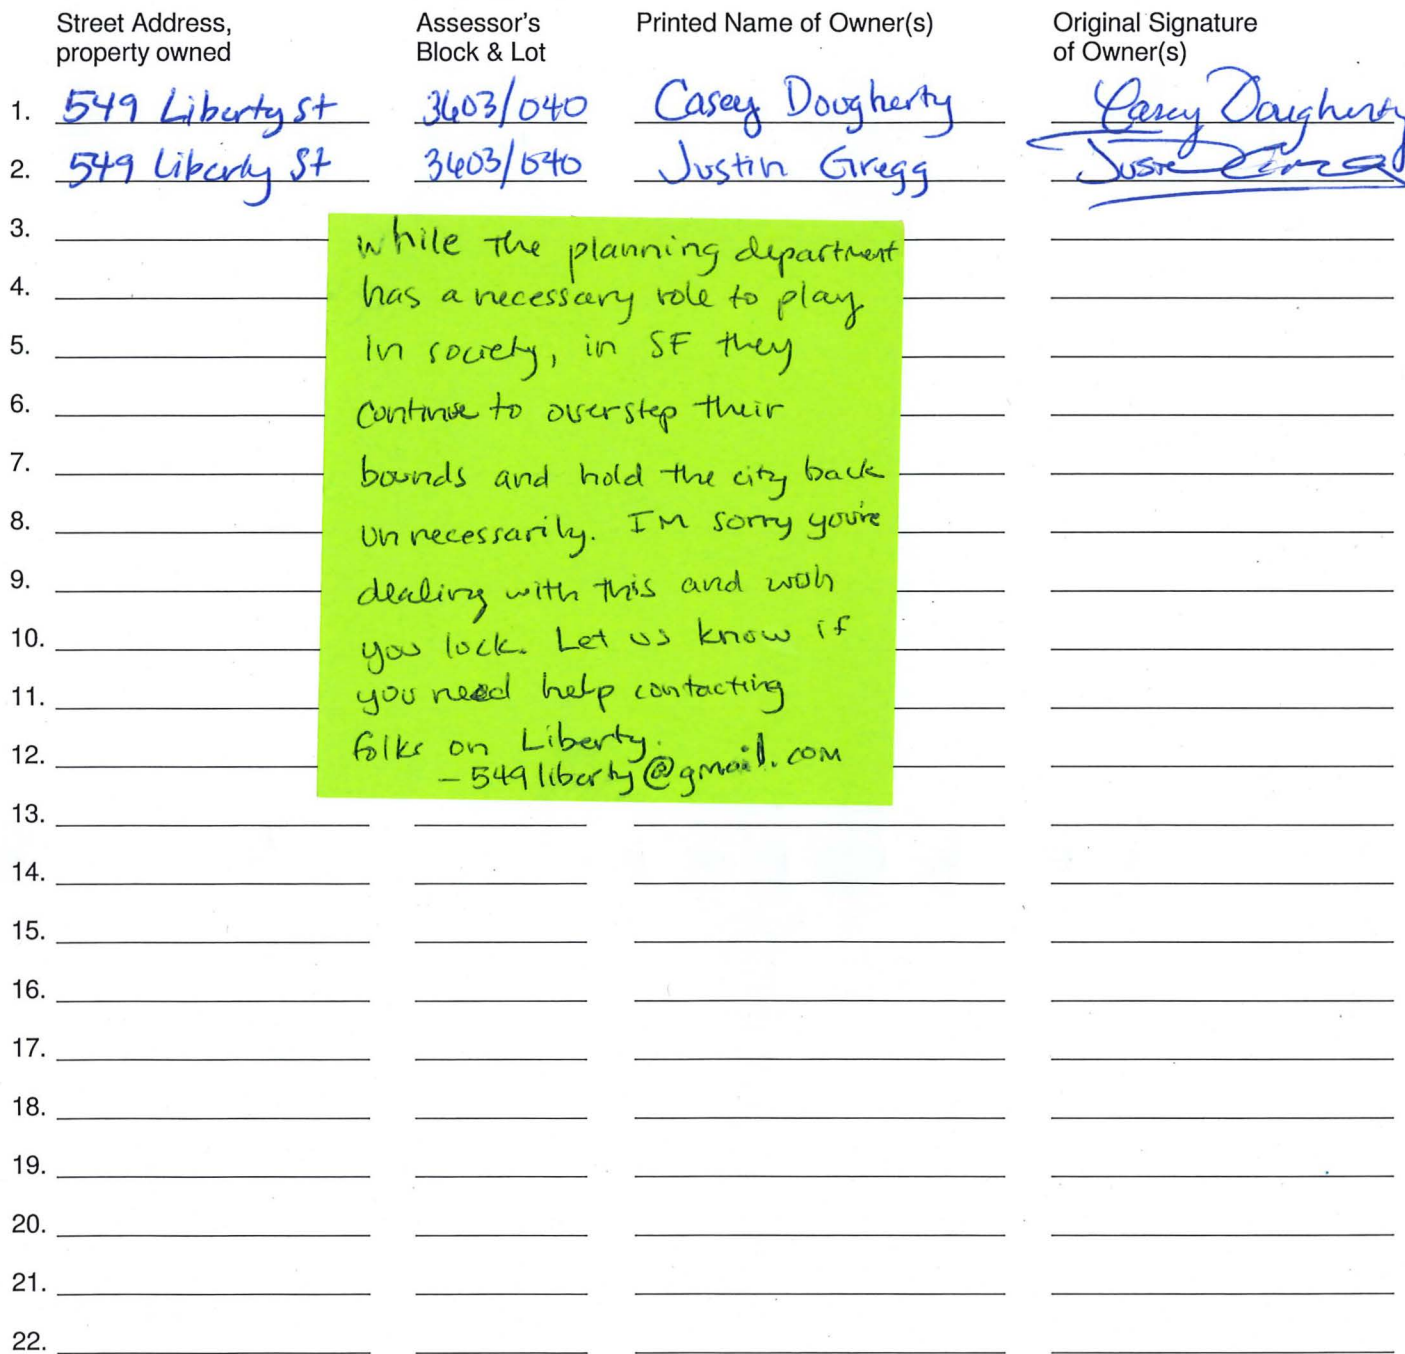 Street Address, property owned Assessor's Block & Lot Printed Name of Owner(s) Original Signature of Owner(s)
1. 549 Liberty St 3603/040 Casey Dougherty Casey Dougherty
2. 549 Liberty St 3603/040 Justin Gregg
3.
4.
5.
6.
7.
8.
9.
10.
11.
12.
while the planning department
has a necessary role to play
in society, in SF they
continue to overstep their
bounds and hold the city back
unnecessarily. I'm sorry you're
dealing with this and wish
you luck. Let us know if
you need help contacting
folks on Liberty.
- 549liberty@gmail.com
13.
14.
15.
16.
17.
18.
19.
20.
21.
22.